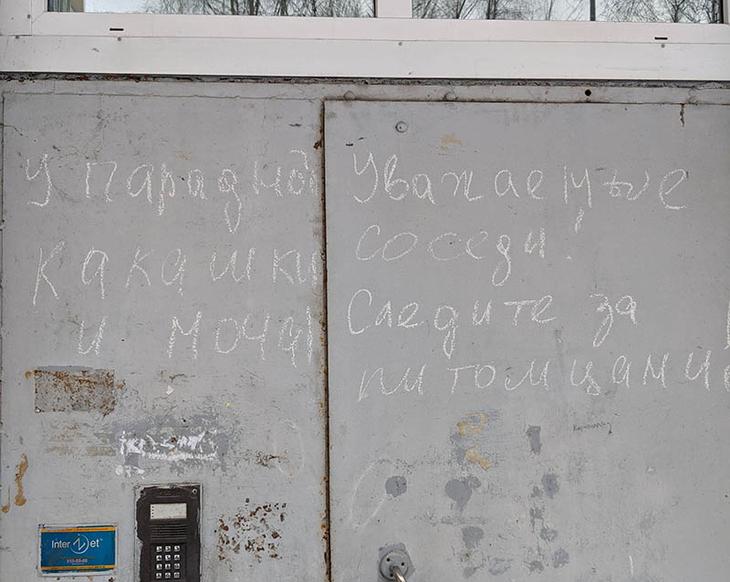 У парадной
какашки
и моча
Уважаемые
соседи!
Следите за
питомцами
InterZet